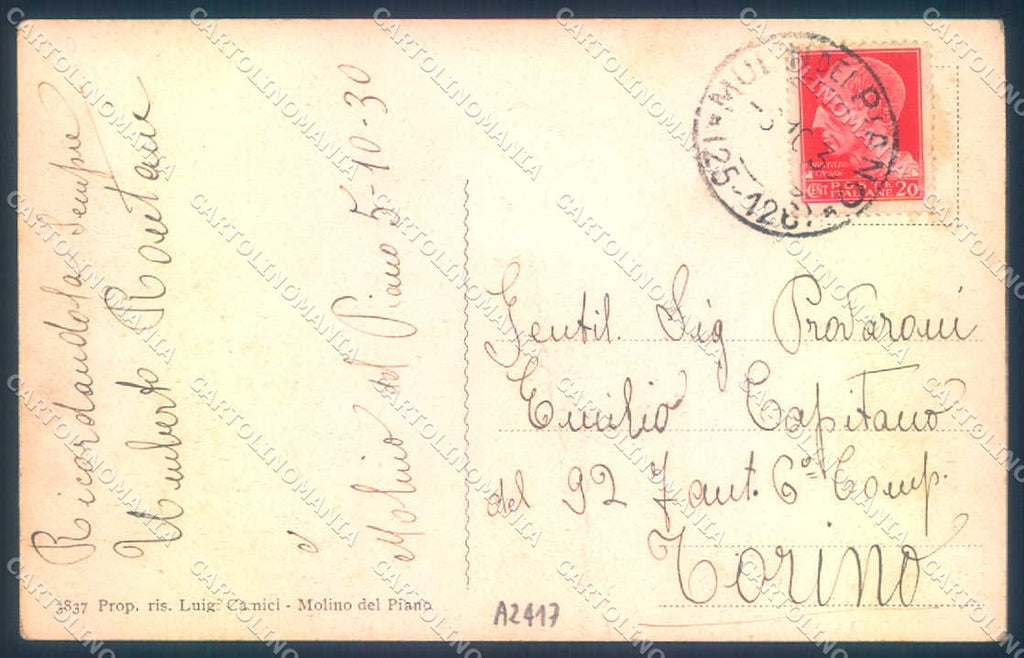 Ricordandola sempre
Umberto
Molino del Piano 5-10-30
3837 Prop. ris. Luigi Camici - Molino del Piano
A2417
DEL PIANO
(25-126)
IVLIVS
CAESAR
CENT POSTE 20
ITALIANE
Gentil. Sig Profaroni
Emilio Capitano
del 92 Fant. 6ª Comp.
Torino
CARTOLINOMANIA